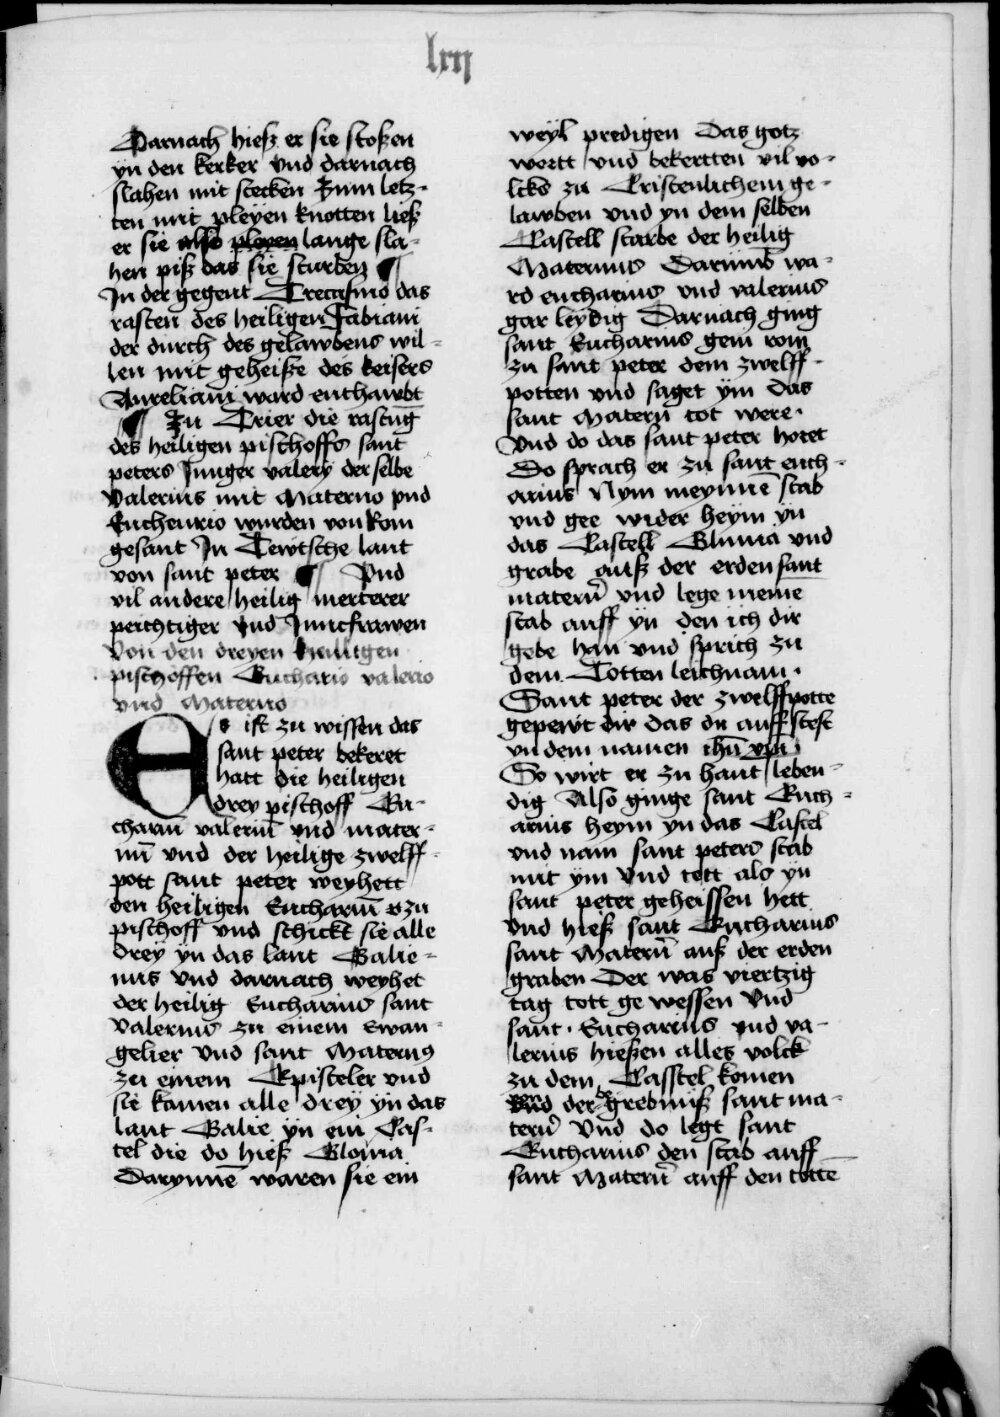 lxij
Darnach hiesz er sie stoszen
yn den kerker vnd darnach
slahen mit stecken Zum letz-
ten mit pleyen knotten liesz
er sie also pleyen lange sla-
hen pisz das sie sturben ¶
In der gegent Trecasino das
rasten des heiligen Fabiani
der durch des gelawbens wil-
len mit geheisze des keisers
Aureliani ward enthawbt
¶ Zu Trier die rastūg
des heiligen pischoffs sant
peters Junger valery der selbe
Valerius mit Materno vnd
Eucheurio wurden von Rom
gesant In Tewtsche lant
von sant peter ¶ Vnd
vil andere heilig merterer
peichtiger vnd Junckfrawen
Von den dreyen heiligen
pischoffen Euchario valerio
vnd Materno
Es ist zu wissen das
sant peter bekeret
hatt die heiligen
drey pischoff Eu-
chariū valeriū vnd mater-
nū vnd der heilige zwelff-
pott sant peter weyhett
den heiligen Euchariū zu
pischoff vnd schickt sie alle
drey yn das lant Galie-
nus vnd darnach weyhet
der heilig Eucharius sant
Valerius zu einem ewan-
gelier vnd sant Maternus
zu einem Episteler vnd
sie kamen alle drey yn das
lant Galie yn ein Cas-
tel die do hiesz Gloma
Darynnē waren sie ein
weyl predigen Das gotz
wortt vnd bekertten vil vo-
lcks zu Cristenlichem ge-
lawben vnd yn dem selben
Castell starbe der heilig
Maternus Darumb wa-
rd eucharius vnd valerius
gar leydig Darnach ging
sant Eucharius gein rom
zu sant peter dem zwelff-
potten vnd saget ym das
sant Materū tot were
Vnd do das sant peter horet
Do sprach er zu sant euch-
arius Nym meynnē stab
vnd gee wider heym yn
das Castell Gluma vnd
grabe ausz der erden sant
materū vnd lege meinē
stab auff yn den ich dir
gebe han vnd sprich zu
dem Totten leichnam
Sant peter der zwelffpotte
gepewt dir das du auff stest
yn dem namen ihū xpi
So wirt er zu hant leben-
dig Also ginge sant Euch-
arius heym yn das Castel
vnd nam sant peters stab
mit ym vnd tett als yn
sant peter geheissen hett
Vnd hiesz sant Eucharius
sant Materū ausz der erden
graben Der was viertzig
tag tott ge wessen Vnd
sant Eucharius vnd va-
lerius hieszen alles volck
zu dem Casstel komen
der grebnusz sant ma-
terū Vnd do legt sant
Eucharius den stab auff
sant Materū auff den tottē